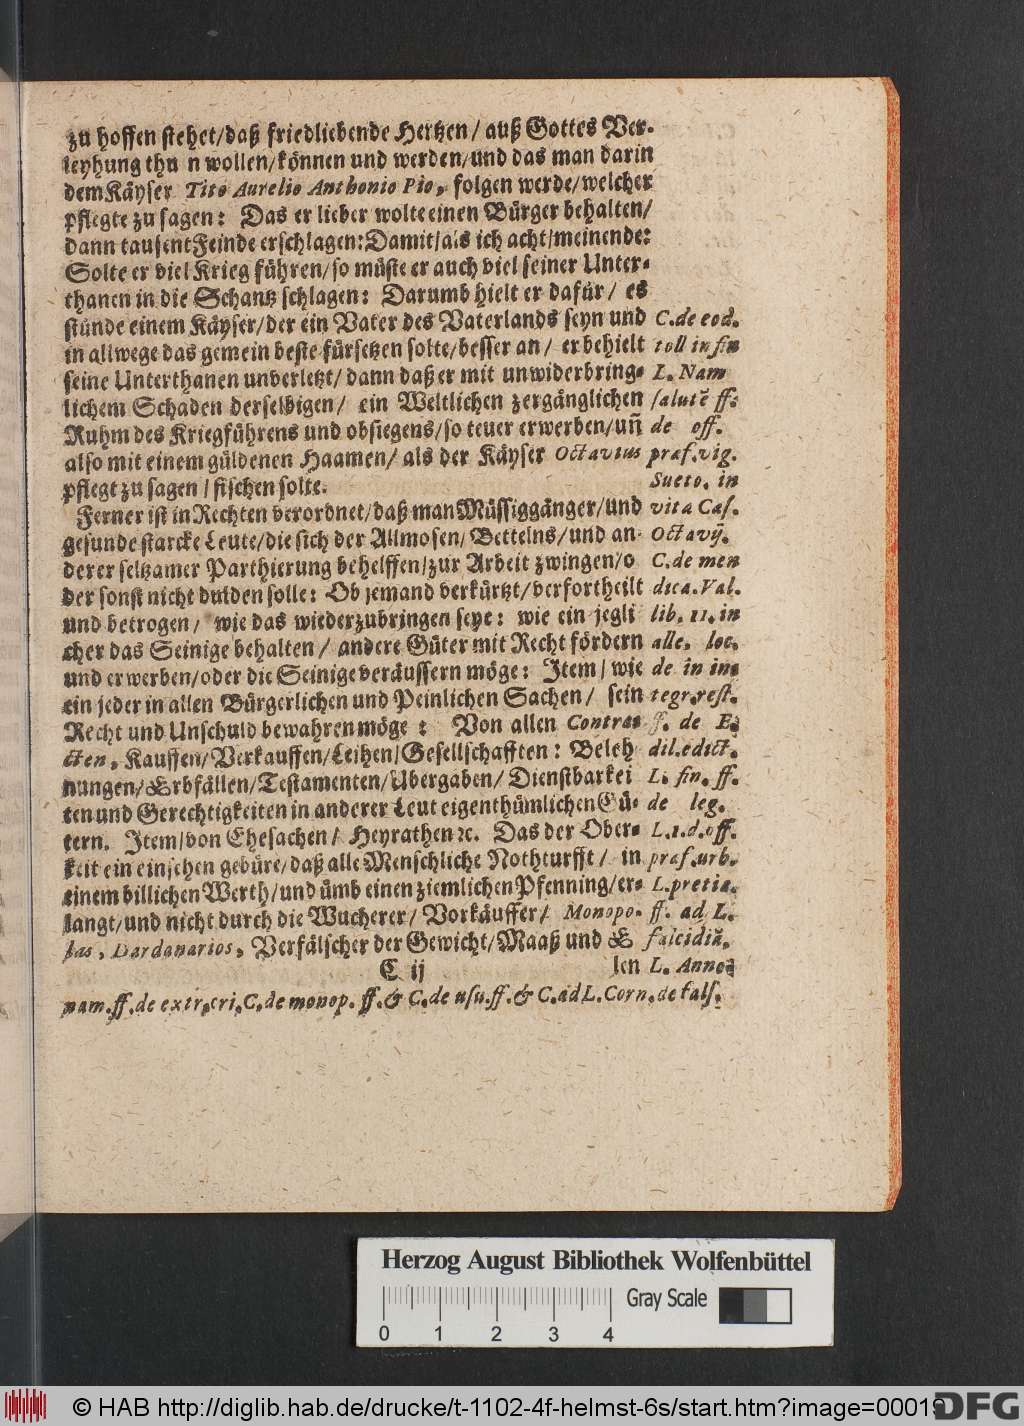 zu hoffen stehet/daß friedliebende Hertzen/ auß Gottes Ver-
leyhung thu n wollen/können und werden/und das man darin
dem Käyser Tito Aurelio Anthonio Pio, folgen werde/welcher
pflegte zu sagen: Das er lieber wolte einen Bürger behalten/
dann tausent Feinde erschlagen: Damit/als ich acht/meinende:
Solte er viel Krieg führen/so müste er auch viel seiner Unter-
thanen in die Schantz schlagen: Darumb hielt er dafür/ es
stünde einem Käyser/der ein Vater des Vaterlands seyn und
in allwege das gemein beste fürsetzen solte/besser an/ er behielt
seine Unterthanen unverletzt/dann daß er mit unwiderbring-
lichem Schaden derselbigen/ ein Weltlichen zergänglichen
Ruhm des Kriegführens und obsiegens/so teuer erwerben/uñ
also mit einem güldenen Haamen/als der Käyser Octavius
pflegt zu sagen/fischen solte.
Ferner ist in Rechten verordnet/daß man Müssiggänger/und
gesunde starcke Leute/die sich der Allmosen/Bettelns/und an-
derer seltzamer Parthierung behelffen/zur Arbeit zwingen/o
der sonst nicht dulden solle: Ob jemand verkürtzt/verfortheilt
und betrogen/ wie das wiederzubringen seye: wie ein jegli
cher das Seinige behalten/ andere Güter mit Recht fördern
und erwerben/oder die Seinige veräussern möge: Item/wie
ein jeder in allen Bürgerlichen und Peinlichen Sachen/ sein
Recht und Unschuld bewahren möge: Von allen Contra-
cten, Kauffen/Verkauffen/Leihen/Gesellschafften: Beleh
nungen/Erbfällen/Testamenten/Ubergaben/Dienstbarkei
ten und Gerechtigkeiten in anderer Leut eigenthümlichen Gü-
tern. Item/von Ehesachen/ Heyrathen ꝛc. Das der Ober-
keit ein einsehen gebüre/daß alle Menschliche Nothturfft/ in
einem billichen Werth/und ümb einen ziemlichen Pfenning/er-
langt/und nicht durch die Wucherer/ Vorkäuffer/ Monopo-
las, Dardanarios, Verfälscher der Gewicht/Maaß und E
C ij
len
C. de eod.
toll in fin
L. Nam
salutē ff.
de off.
præf. vig.
Sueto. in
vita Cæs.
Octavij.
C. de men
dica. Val.
lib. 11. in
alle. loc.
de in in-
tegr. rest.
ff. de E-
dil. edict.
L. fin. ff.
de leg.
L. 1. d. off.
præf. urb.
L. pretia.
ff. ad L.
falcidiā.
L. Anno-
nam. ff. de extr. cri. C. de monop. ff. & C. de usu. ff. & C. ad L. Corn. de fals.
Herzog August Bibliothek Wolfenbüttel
Gray Scale
0 1 2 3 4
© HAB http://diglib.hab.de/drucke/t-1102-4f-helmst-6s/start.htm?image=00019
DFG